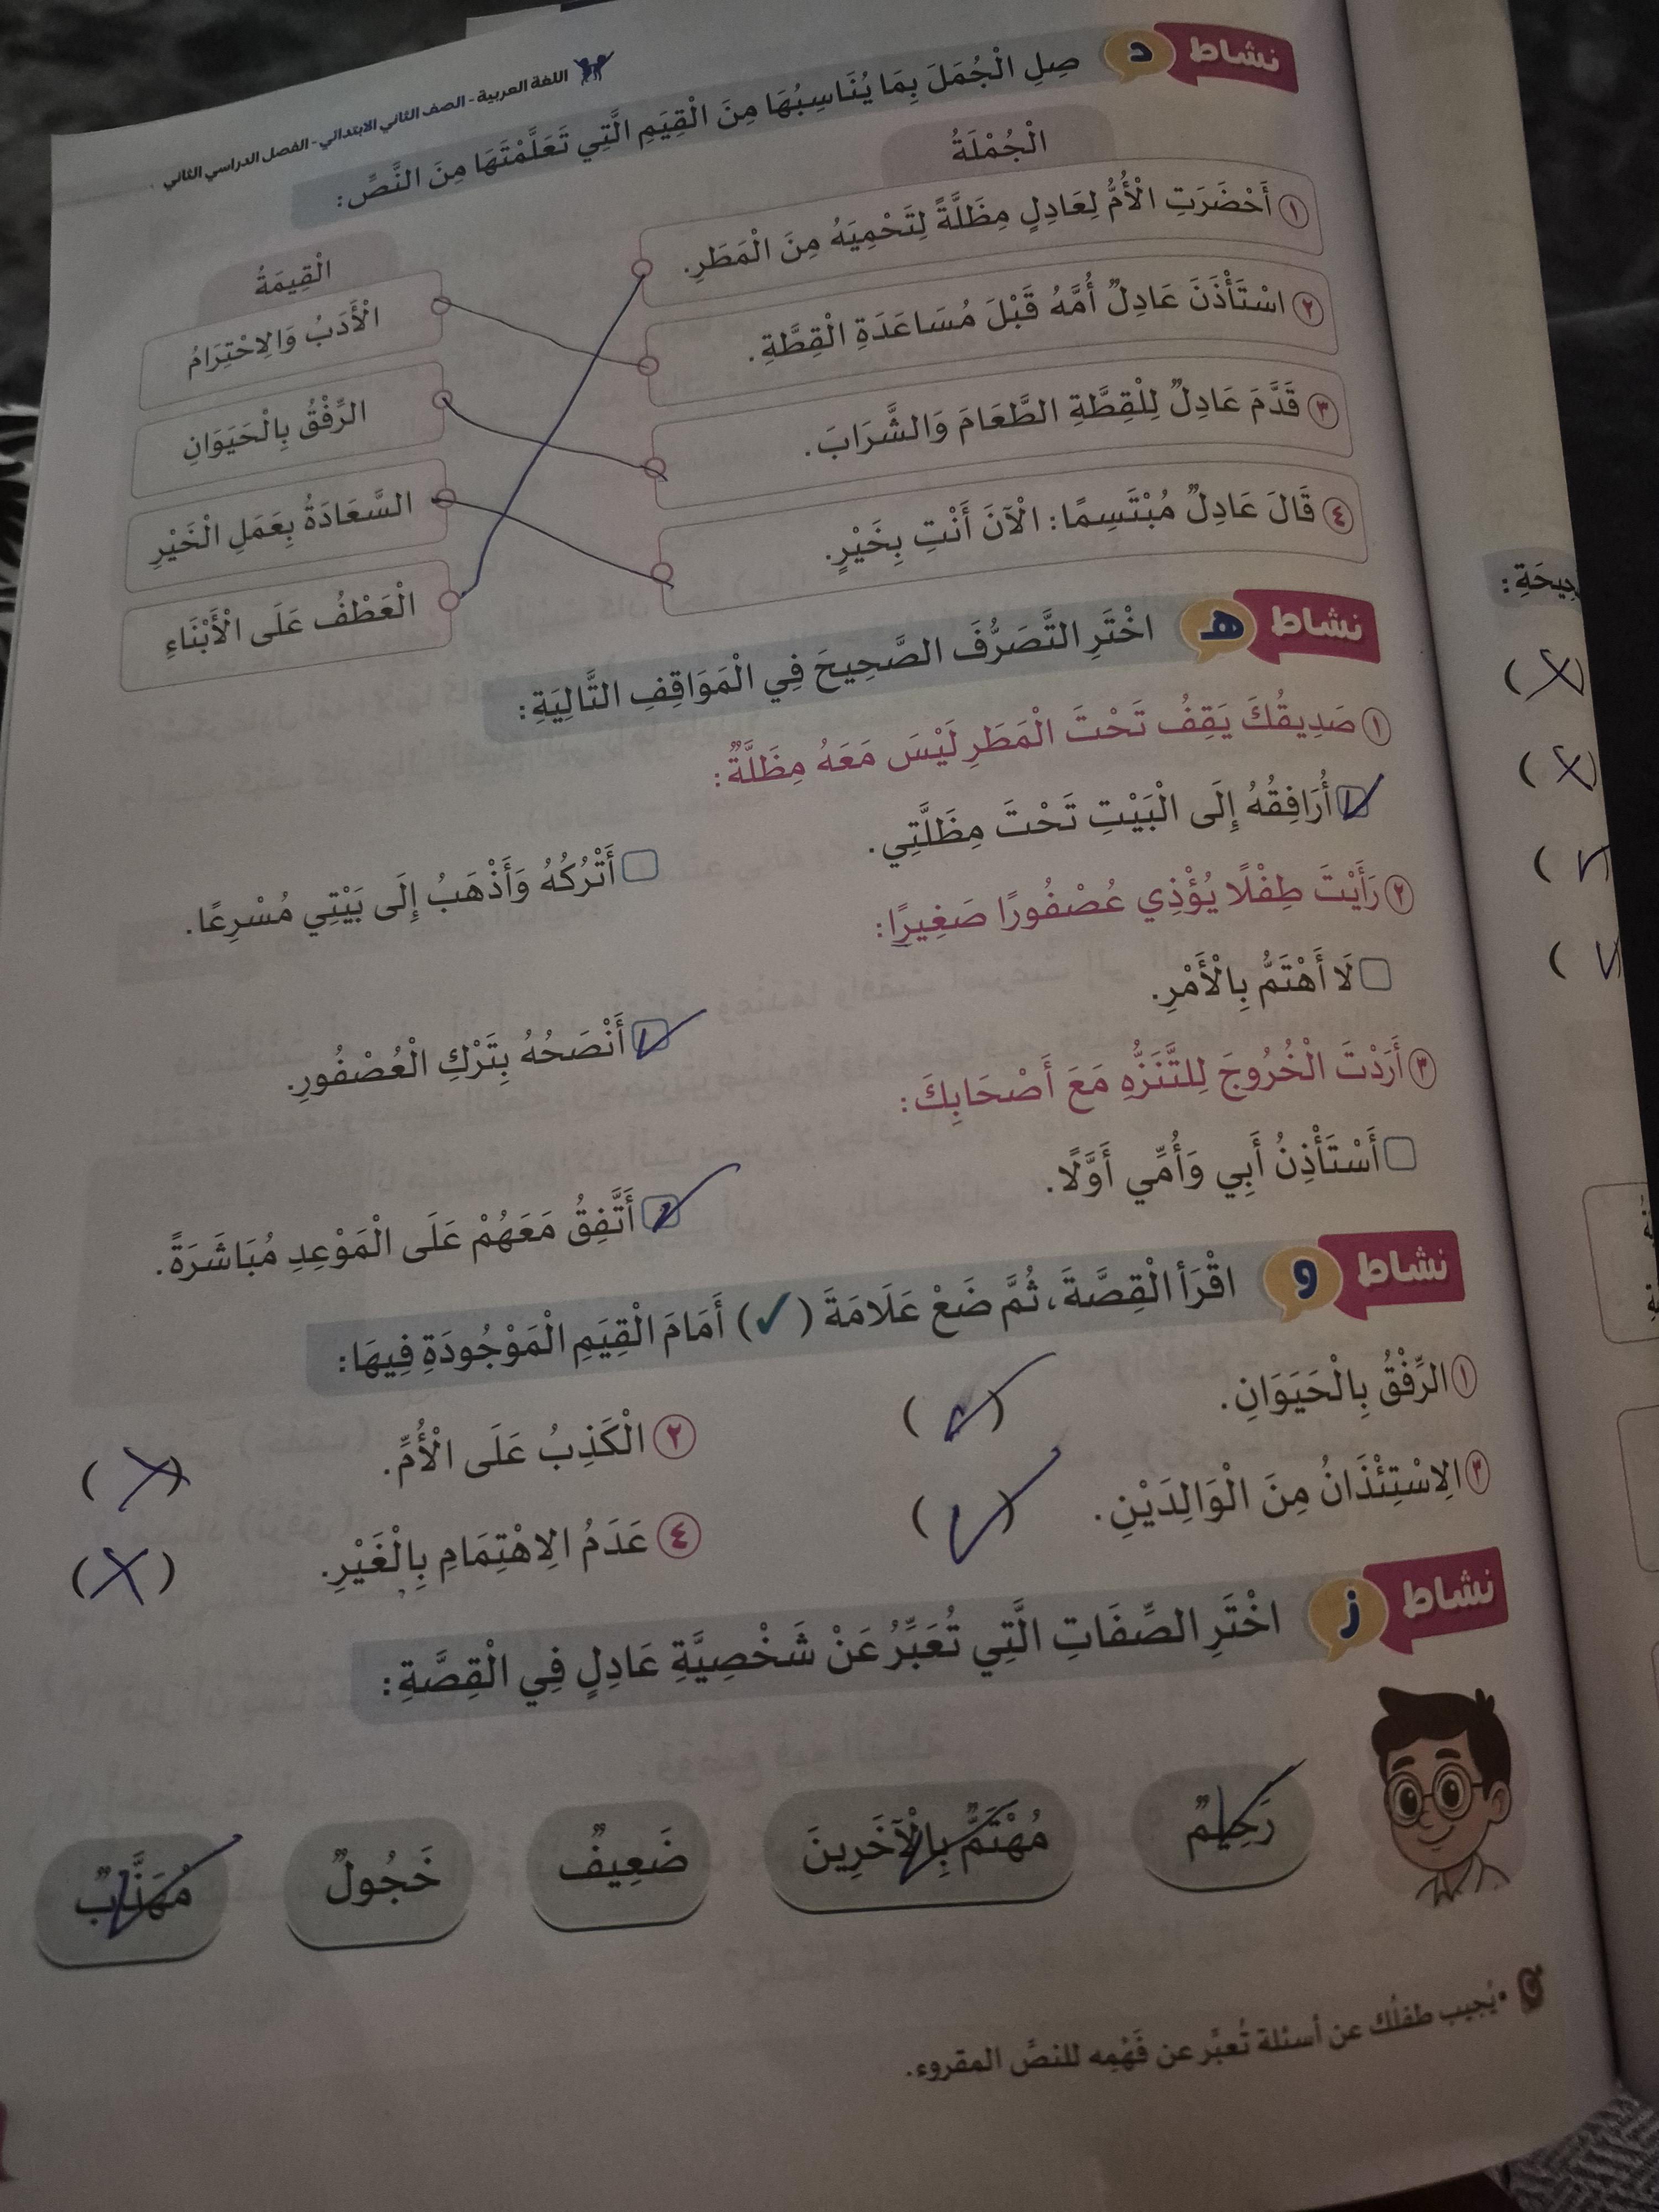 اللغة العربية - الصف الثاني الابتدائي - الفصل الدراسي الثاني
نشاط د صِلِ الْجُمَلَ بِمَا يُنَاسِبُهَا مِنَ الْقِيَمِ الَّتِي تَعَلَّمْتَهَا مِنَ النَّصِّ:
الْجُمْلَةُ
الْقِيمَةُ
١ أَحْضَرَتِ الْأُمُّ لِعَادِلٍ مِظَلَّةً لِتَحْمِيَهُ مِنَ الْمَطَرِ.
الْأَدَبُ وَالِاحْتِرَامُ
٢ اسْتَأْذَنَ عَادِلٌ أُمَّهُ قَبْلَ مُسَاعَدَةِ الْقِطَّةِ.
الرِّفْقُ بِالْحَيَوَانِ
٣ قَدَّمَ عَادِلٌ لِلْقِطَّةِ الطَّعَامَ وَالشَّرَابَ.
السَّعَادَةُ بِعَمَلِ الْخَيْرِ
٤ قَالَ عَادِلٌ مُبْتَسِمًا: الْآنَ أَنْتِ بِخَيْرٍ.
الْعَطْفُ عَلَى الْأَبْنَاءِ
نشاط هـ اخْتَرِ التَّصَرُّفَ الصَّحِيحَ فِي الْمَوَاقِفِ التَّالِيَةِ:
١ صَدِيقُكَ يَقِفُ تَحْتَ الْمَطَرِ لَيْسَ مَعَهُ مِظَلَّةٌ:
أُرَافِقُهُ إِلَى الْبَيْتِ تَحْتَ مِظَلَّتِي.
أَتْرُكُهُ وَأَذْهَبُ إِلَى بَيْتِي مُسْرِعًا.
٢ رَأَيْتَ طِفْلًا يُؤْذِي عُصْفُورًا صَغِيرًا:
لَا أَهْتَمُّ بِالْأَمْرِ.
أَنْصَحُهُ بِتَرْكِ الْعُصْفُورِ.
٣ أَرَدْتَ الْخُرُوجَ لِلتَّنَزُّهِ مَعَ أَصْحَابِكَ:
أَسْتَأْذِنُ أَبِي وَأُمِّي أَوَّلًا.
أَتَّفِقُ مَعَهُمْ عَلَى الْمَوْعِدِ مُبَاشَرَةً.
نشاط و اقْرَأِ الْقِصَّةَ، ثُمَّ ضَعْ عَلَامَةَ (✓) أَمَامَ الْقِيَمِ الْمَوْجُودَةِ فِيهَا:
١ الرِّفْقُ بِالْحَيَوَانِ. (✓)
٢ الْكَذِبُ عَلَى الْأُمِّ. (X)
٣ الِاسْتِئْذَانُ مِنَ الْوَالِدَيْنِ. (✓)
٤ عَدَمُ الِاهْتِمَامِ بِالْغَيْرِ. (X)
نشاط ز اخْتَرِ الصِّفَاتِ الَّتِي تُعَبِّرُ عَنْ شَخْصِيَّةِ عَادِلٍ فِي الْقِصَّةِ:
رَحِيمٌ
مُهْتَمٌّ بِالْآخَرِينَ
ضَعِيفٌ
خَجُولٌ
مُهَذَّبٌ
• يُجيب طفلُك عن أسئلة تُعبِّر عن فَهْمِه للنصِّ المقروء.